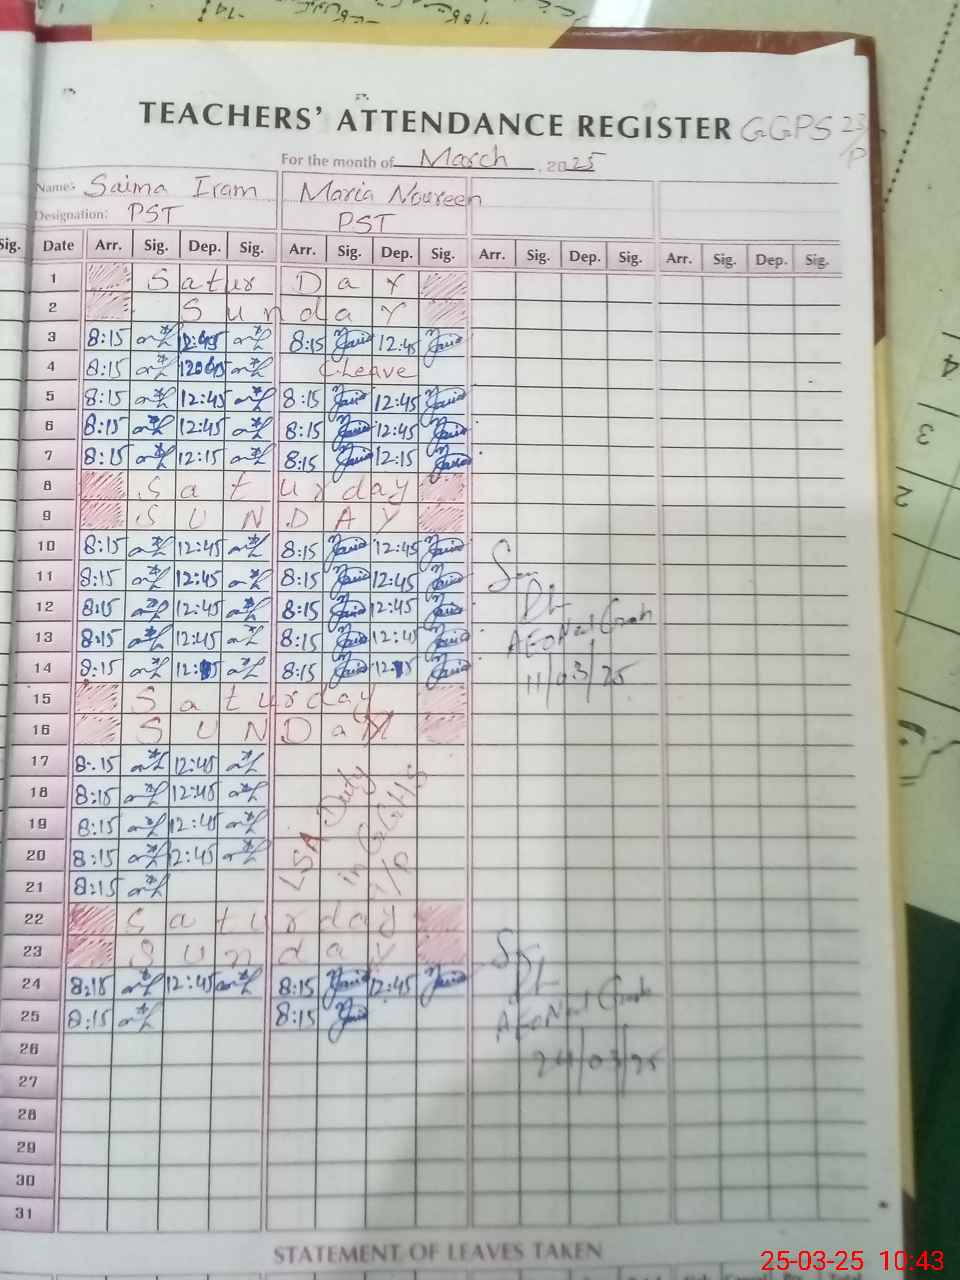 TEACHERS' ATTENDANCE REGISTER GGPS 23
For the month of March, 2025
Name: Saima Iram Maria Noureen
Designation: PST PST
Sig. Date Arr. Sig. Dep. Sig. Arr. Sig. Dep. Sig. Arr. Sig. Dep. Sig. Arr. Sig. Dep. Sig.
1 Satur Day
2 Sunday
3 8:15 12:45 8:15 12:45
4 8:15 C.Leave
5 8:15 12:45 8:15 12:45
6 8:15 12:45 8:15 12:45
7 8:15 12:15 8:15 12:15
8 Saturday
9 SUNDAY
10 8:15 12:45 8:15 12:45
11 8:15 12:45 8:15 12:45
12 8:15 12:45 8:15 12:45
13 8:15 12:45 8:15 12:45
14 8:15 8:15
11/03/25
15 Saturday
16 SUNDaY
17 8:15 12:45
18 8:15 12:45
19 8:15 12:45
20 8:15 12:45
21 8:15
LSA Duty
in GGHS
22 Saturday
23 Sunday
24 8:15 12:45 8:15 12:45
25 8:15 8:15
26
24/03/25
27
28
29
30
31
STATEMENT OF LEAVES TAKEN
4
3
2
25-03-25 10:43